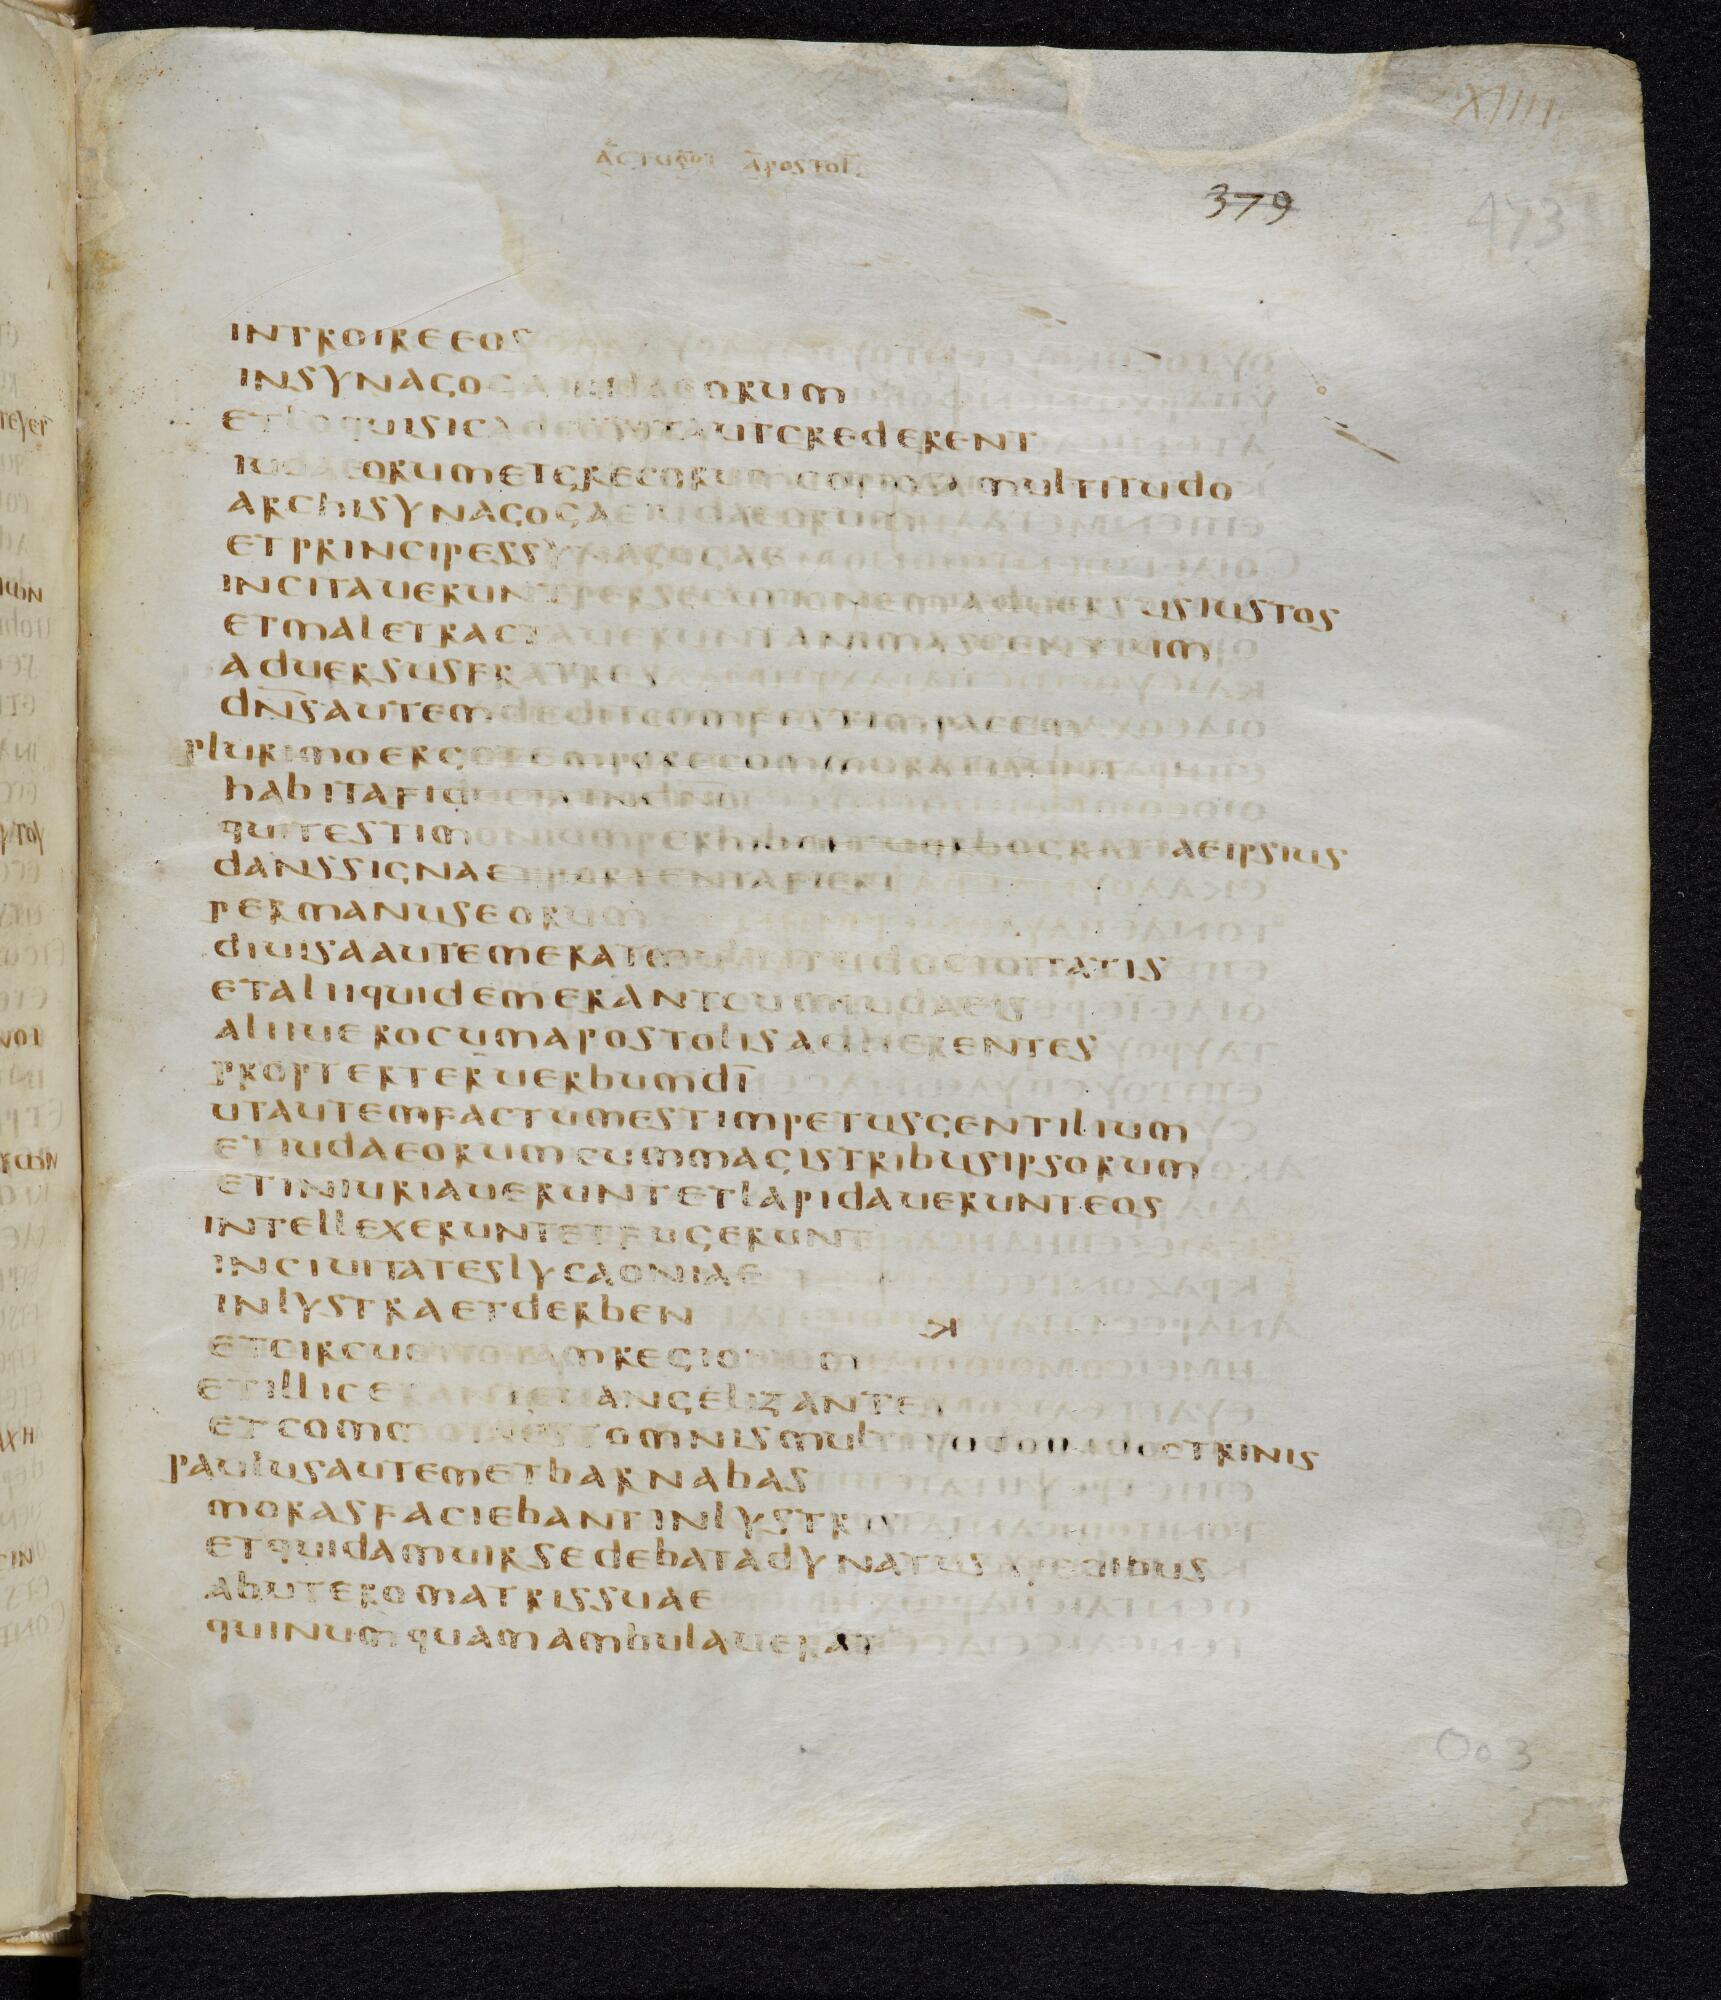 XIIII
ACTUUM APOSTOL
379
473
INTROIREEOS
INSYNAGOGAIUDAEORUM
ETLOQUISICADEOSITAUTCREDERENT
IUDAEORUMETGRECORUMCOPIOSAMULTITUDO
ARCHISYNAGOGAEIUDAEORUM
ETPRINCIPESSYNAGOGAE
INCITAUERUNTPERSECUTIONEMADUERSUSIUSTOS
ETMALETRACTAUERUNTANIMASGENTIUM
ADUERSUSFRATRES
DN̄SAUTEMDEDITCOMFESTIMPACEM
PLURIMOERGOTEMPORECOMMORATI
HABITAFIDUCIAINDNO
QUITESTIMONIUMPERHIBUITUERBOGRATIAEIPSIUS
DANSSIGNAETPORTENTAFIERI
PERMANUSEORUM
DIUISAAUTEMERATMULTITUDOCIUITATIS
ETALIIQUIDEMERANTCUMIUDAEIS
ALIIUEROCUMAPOSTOLISADHERENTES
PROPTERTERUERBUMDĪ
UTAUTEMFACTUMESTIMPETUSGENTILIUM
ETIUDAEORUMCUMMAGISTRIBUSIPSORUM
ETINIURIAUERUNTETLAPIDAUERUNTEOS
INTELLEXERUNTETFUGERUNT
INCIUITATESLYCAONIAE
INLYSTRAETDERBEN
ETCIRCUMTOTAMREGIONEM
ETILLICERANTEUANGELIZANTES
ETCOMMOTAESTOMNISMULTITUDOINDOCTRINIS
PAULUSAUTEMETBARNABAS
MORASFACIEBANTINLYSTRIS
ETQUIDAMUIRSEDEBATADYNATUSAPEDIBUS
ABUTEROMATRISSUAE
QUINUMQUAMAMBULAUERAT
Oo 3